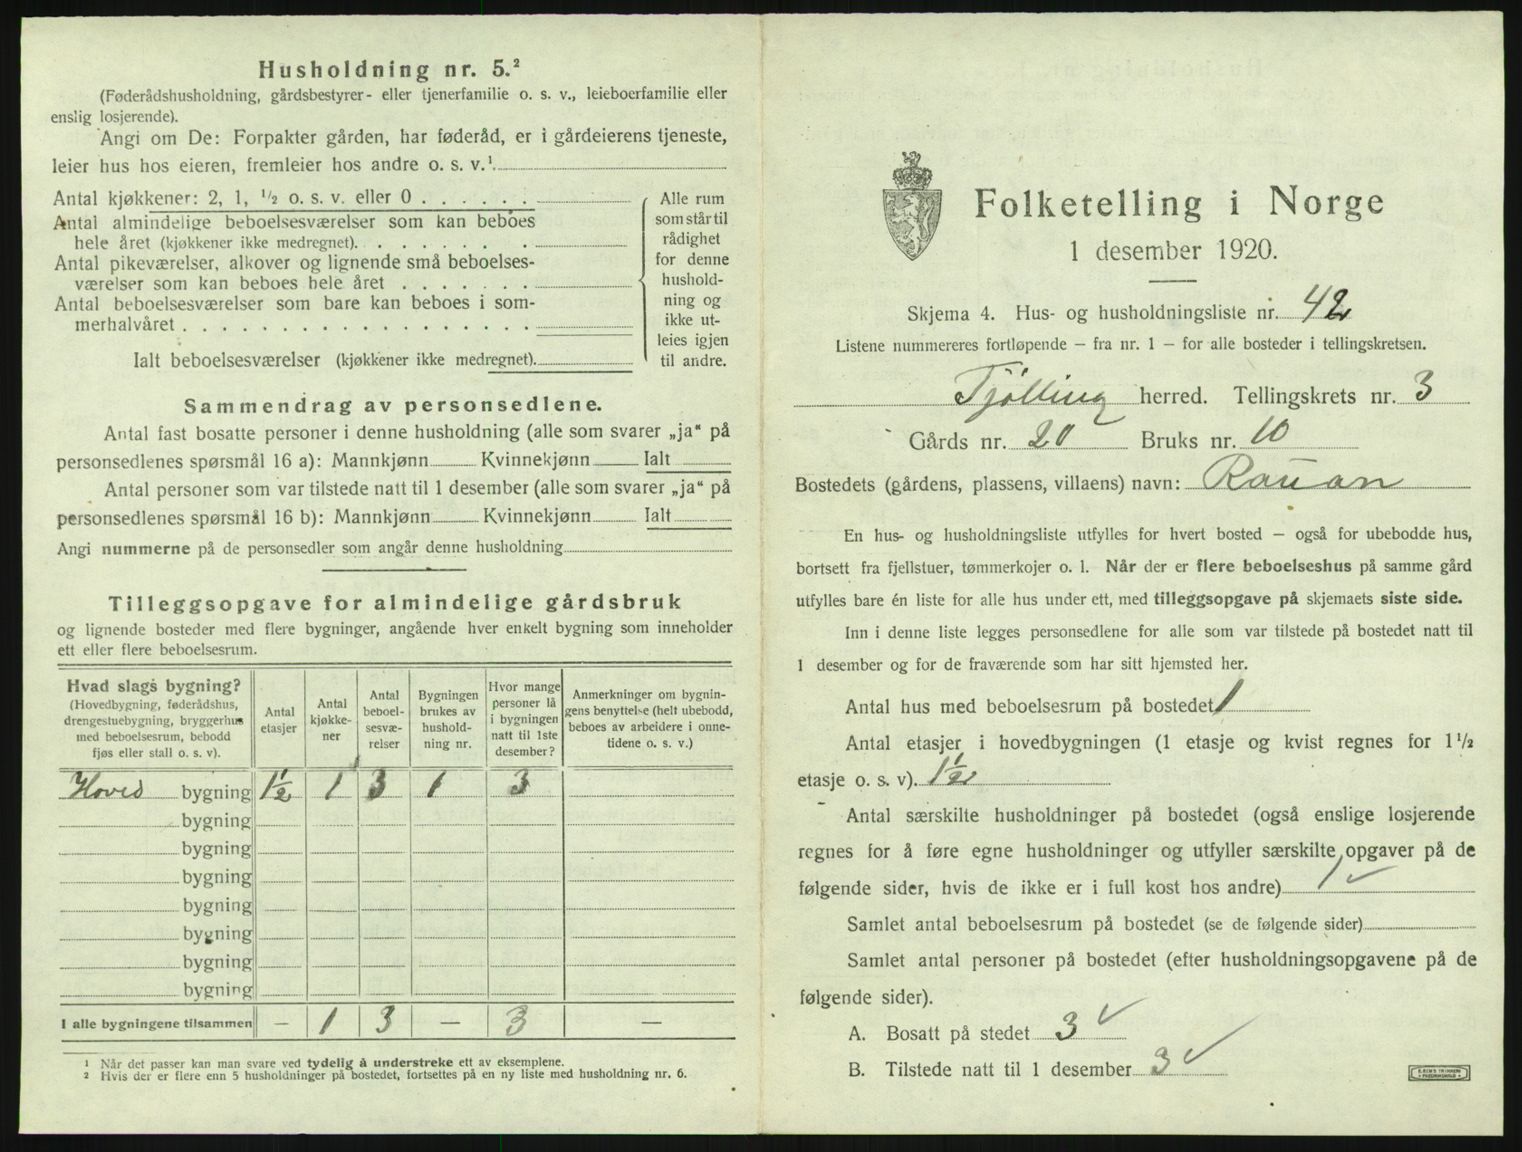 Husholdning nr. 5.²
(Føderådshusholdning, gårdsbestyrer- eller tjenerfamilie o. s. v., leieboerfamilie eller
enslig losjerende).
Angi om De: Forpakter gården, har føderåd, er i gårdeierens tjeneste,
leier hus hos eieren, fremleier hos andre o. s. v.¹
Antal kjøkkener: 2, 1, ½ o. s. v. eller 0
Antal almindelige beboelsesværelser som kan beboes
hele året (kjøkkener ikke medregnet).
Antal pikeværelser, alkover og lignende små beboelses-
værelser som kan beboes hele året
Antal beboelsesværelser som bare kan beboes i som-
merhalvåret
Ialt beboelsesværelser (kjøkkener ikke medregnet).
Alle rum
som står til
rådighet
for denne
hushold-
ning og
ikke ut-
leies igjen
til andre.
Sammendrag av personsedlene.
Antal fast bosatte personer i denne husholdning (alle som svarer „ja“ på
personsedlenes spørsmål 16 a): Mannkjønn Kvinnekjønn Ialt
Antal personer som var tilstede natt til 1 desember (alle som svarer „ja“ på
personsedlenes spørsmål 16 b): Mannkjønn Kvinnekjønn Ialt
Angi nummerne på de personsedler som angår denne husholdning
Tilleggsopgave for almindelige gårdsbruk
og lignende bosteder med flere bygninger, angående hver enkelt bygning som inneholder
ett eller flere beboelsesrum.
Hvad slags bygning?
(Hovedbygning, føderådshus,
drengestuebygning, bryggerhus
med beboelsesrum, bebodd
fjøs eller stall o. s. v).
Antal
etasjer
Antal
kjøkke-
ner
Antal
beboel-
sesvæ-
relser
Bygningen
brukes av
hushold-
ning nr.
Hvor mange
personer lå
i bygningen
natt til 1ste
desember?
Anmerkninger om bygnin-
gens benyttelse (helt ubebodd,
beboes av arbeidere i onne-
tidene o. s. v.)
Hoved bygning 1½ 1 3 1 3
bygning
bygning
bygning
bygning
bygning
bygning
bygning
I alle bygningene tilsammen — 1 3 — 3 —
¹ Når det passer kan man svare ved tydelig å understreke ett av eksemplene.
² Hvis der er flere enn 5 husholdninger på bostedet, fortsettes på en ny liste med husholdning nr. 6.
Folketelling i Norge
1 desember 1920.
Skjema 4. Hus- og husholdningsliste nr. 42
Listene nummereres fortløpende — fra nr. 1 — for alle bosteder i tellingskretsen.
Tjølling herred. Tellingskrets nr. 3
Gårds nr. 20 Bruks nr. 10
Bostedets (gårdens, plassens, villaens) navn: Rauan
En hus- og husholdningsliste utfylles for hvert bosted — også for ubebodde hus,
bortsett fra fjellstuer, tømmerkojer o. l. Når der er flere beboelseshus på samme gård
utfylles bare én liste for alle hus under ett, med tilleggsopgave på skjemaets siste side.
Inn i denne liste legges personsedlene for alle som var tilstede på bostedet natt til
1 desember og for de fraværende som har sitt hjemsted her.
Antal hus med beboelsesrum på bostedet 1
Antal etasjer i hovedbygningen (1 etasje og kvist regnes for 1½
etasje o. s. v). 1½
Antal særskilte husholdninger på bostedet (også enslige losjerende
regnes for å føre egne husholdninger og utfyller særskilte opgaver på de
følgende sider, hvis de ikke er i full kost hos andre) 1 ✓
Samlet antal beboelsesrum på bostedet (se de følgende sider)
Samlet antal personer på bostedet (efter husholdningsopgavene på de
følgende sider).
A. Bosatt på stedet 3 ✓
B. Tilstede natt til 1 desember 3 ✓